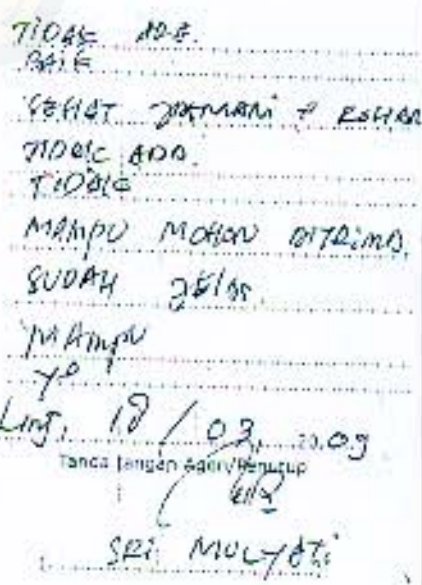 TIDAK ADA.
BAIK
SEHAT JASMANI & ROHANI
TIDAK ADA.
TIDAK
MAMPU MOHON DITRIMA.
SUDAH JELAS
MAMPU
YA
18 / 03, 2009
Tanda tangan Agen/Penutup
SRI MULYATI